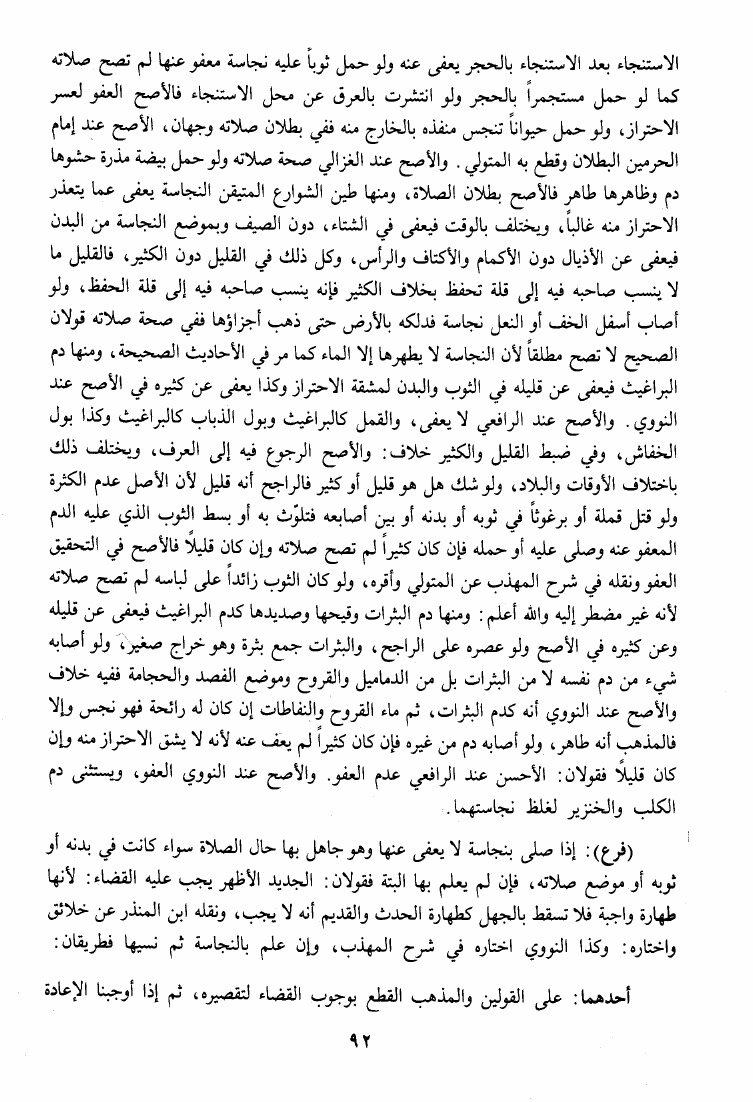 الاستنجاء بعد الاستنجاء بالحجر يعفى عنه ولو حمل ثوباً عليه نجاسة معفو عنها لم تصح صلاته
كما لو حمل مستجمراً بالحجر ولو انتشرت بالعرق عن محل الاستنجاء فالأصح العفو لعسر
الاحتراز، ولو حمل حيواناً تنجس منفذه بالخارج منه ففي بطلان صلاته وجهان، الأصح عند إمام
الحرمين البطلان وقطع به المتولي. والأصح عند الغزالي صحة صلاته ولو حمل بيضة مذرة حشوها
دم وظاهرها طاهر فالأصح بطلان الصلاة، ومنها طين الشوارع المتيقن النجاسة يعفى عما يتعذر
الاحتراز منه غالباً، ويختلف بالوقت فيعفى في الشتاء، دون الصيف وبموضع النجاسة من البدن
فيعفى عن الأذيال دون الأكمام والأكتاف والرأس، وكل ذلك في القليل دون الكثير، فالقليل ما
لا ينسب صاحبه فيه إلى قلة تحفظ بخلاف الكثير فإنه ينسب صاحبه فيه إلى قلة الحفظ، ولو
أصاب أسفل الخف أو النعل نجاسة فدلكه بالأرض حتى ذهب أجزاؤها ففي صحة صلاته قولان
الصحيح لا تصح مطلقاً لأن النجاسة لا يطهرها إلا الماء كما مر في الأحاديث الصحيحة، ومنها دم
البراغيث فيعفى عن قليله في الثوب والبدن لمشقة الاحتراز وكذا يعفى عن كثيره في الأصح عند
النووي. والأصح عند الرافعي لا يعفى، والقمل كالبراغيث وبول الذباب كالبراغيث وكذا بول
الخفاش، وفي ضبط القليل والكثير خلاف: والأصح الرجوع فيه إلى العرف، ويختلف ذلك
باختلاف الأوقات والبلاد، ولو شك هل هو قليل أو كثير فالراجح أنه قليل لأن الأصل عدم الكثرة
ولو قتل قملة أو برغوثاً في ثوبه أو بدنه أو بين أصابعه فتلوّث به أو بسط الثوب الذي عليه الدم
المعفو عنه وصلى عليه أو حمله فإن كان كثيراً لم تصح صلاته وإن كان قليلاً فالأصح في التحقيق
العفو ونقله في شرح المهذب عن المتولي وأقره، ولو كان الثوب زائداً على لباسه لم تصح صلاته
لأنه غير مضطر إليه والله أعلم: ومنها دم البثرات وقيحها وصديدها كدم البراغيث فيعفى عن قليله
وعن كثيره في الأصح ولو عصره على الراجح، والبثرات جمع بثرة وهو خراج صغير، ولو أصابه
شيء من دم نفسه لا من البثرات بل من الدماميل والقروح وموضع الفصد والحجامة ففيه خلاف
والأصح عند النووي أنه كدم البثرات، ثم ماء القروح والنفاطات إن كان له رائحة فهو نجس وإلا
فالمذهب أنه طاهر، ولو أصابه دم من غيره فإن كان كثيراً لم يعف عنه لأنه لا يشق الاحتراز منه وإن
كان قليلاً فقولان: الأحسن عند الرافعي عدم العفو. والأصح عند النووي العفو، ويستثنى دم
الكلب والخنزير لغلظ نجاستهما.
(فرع): إذا صلى بنجاسة لا يعفى عنها وهو جاهل بها حال الصلاة سواء كانت في بدنه أو
ثوبه أو موضع صلاته، فإن لم يعلم بها البتة فقولان: الجديد الأظهر يجب عليه القضاء: لأنها
طهارة واجبة فلا تسقط بالجهل كطهارة الحدث والقديم أنه لا يجب، ونقله ابن المنذر عن خلائق
واختاره: وكذا النووي اختاره في شرح المهذب، وإن علم بالنجاسة ثم نسيها فطريقان:
أحدهما: على القولين والمذهب القطع بوجوب القضاء لتقصيره، ثم إذا أوجبنا الإعادة
٩٢